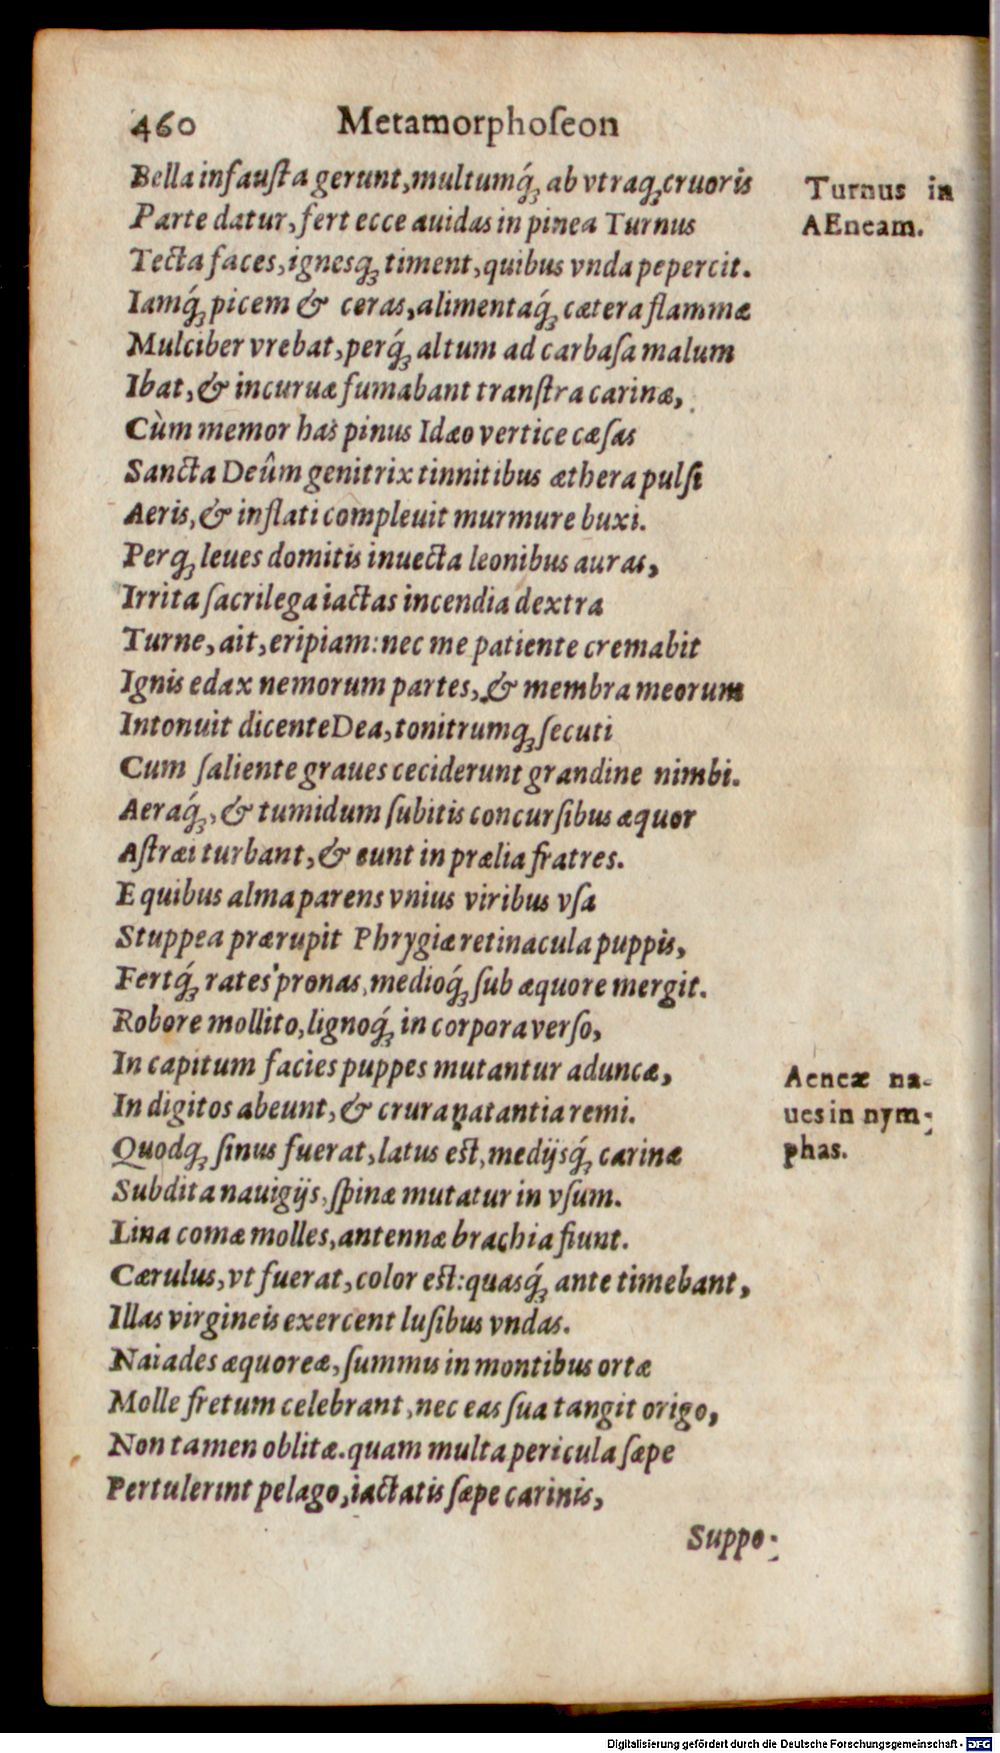 460 Metamorphoſeon
Bella infauſta gerunt, multumq́ꝫ ab vtraqꝫ cruoris
Turnus in
Parte datur, fert ecce auidas in pinea Turnus
AEneam.
Tecta faces, ignesqꝫ timent, quibus vnda pepercit.
Iamq́ꝫ picem & ceras, alimentaq́ꝫ cætera flammæ
Mulciber vrebat, perq́ꝫ altum ad carbaſa malum
Ibat, & incuruæ fumabant tranſtra carinæ,
Cùm memor has pinus Idæo vertice cæſas
Sancta Deûm genitrix tinnitibus æthera pulſi
Aeris, & inflati compleuit murmure buxi.
Perqꝫ leues domitis inuecta leonibus auras,
Irrita ſacrilega iactas incendia dextra
Turne, ait, eripiam: nec me patiente cremabit
Ignis edax nemorum partes, & membra meorum
Intonuit dicente Dea, tonitrumqꝫ ſecuti
Cum ſaliente graues ceciderunt grandine nimbi.
Aeraq́ꝫ, & tumidum ſubitis concurſibus æquor
Aſtræi turbant, & eunt in prælia fratres.
E quibus alma parens vnius viribus vſa
Stuppea prærupit Phrygiæ retinacula puppis,
Fertq́ꝫ rates pronas, medioq́ꝫ ſub æquore mergit.
Robore mollito, lignoq́ꝫ in corpora verſo,
In capitum facies puppes mutantur aduncæ,
Aeneæ na-
In digitos abeunt, & crura natantia remi.
ues in nym-
Quodqꝫ ſinus fuerat, latus eſt, medijsq́ꝫ carinæ
phas.
Subdita nauigijs, ſpinæ mutatur in vſum.
Lina comæ molles, antennæ brachia fiunt.
Cærulus, vt fuerat, color eſt: quasq́ꝫ ante timebant,
Illas virgineis exercent luſibus vndas.
Naiades æquoreæ, ſummis in montibus ortæ
Molle fretum celebrant, nec eas ſua tangit origo,
Non tamen oblitæ. quam multa pericula ſæpe
Pertulerint pelago, iactatis ſæpe carinis,
Suppo-
Digitalisierung gefördert durch die Deutsche Forschungsgemeinschaft - DFG